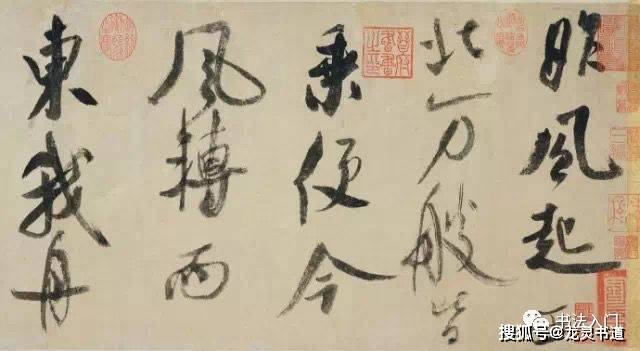 昨風起西
北万艘皆
乘便今
風轉而
東我舟
书法入门
搜狐号@龙灵书道